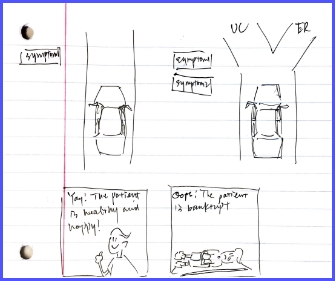 UC ER
symptom
symptom1
symptom2
Yay! The patient
is healthy and
happy!
Oops! The patient
is bankrupt